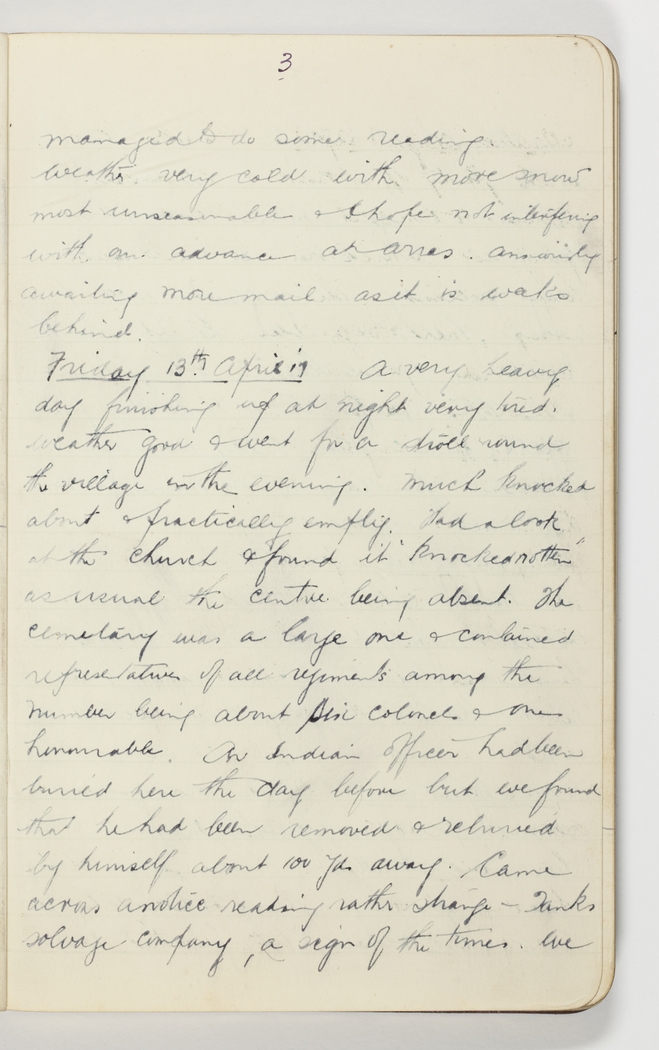 3
managed to do some reading.
Weather very cold with more snow
most unseasonable & I hope not interfering
with our advance at Arras. Anxiously
awaiting more mail as it is weeks
behind.
Friday 13th April 17 A very heavy
day finishing up at night very tired.
Weather good & went for a stroll round
the village in the evening. Much knocked
about & practically empty. Had a look
at the church & found it "knocked rotten"
as usual the centre being absent. The
cemetary was a large one & contained
representatives of all regiments among the
number being about six colonels & one
honourable. An Indian officer had been
buried here the day before but we found
that he had been removed & reburied
by himself about 100 yds away. Came
across a notice reading rather strange - Tanks
salvage company, a sign of the times. We